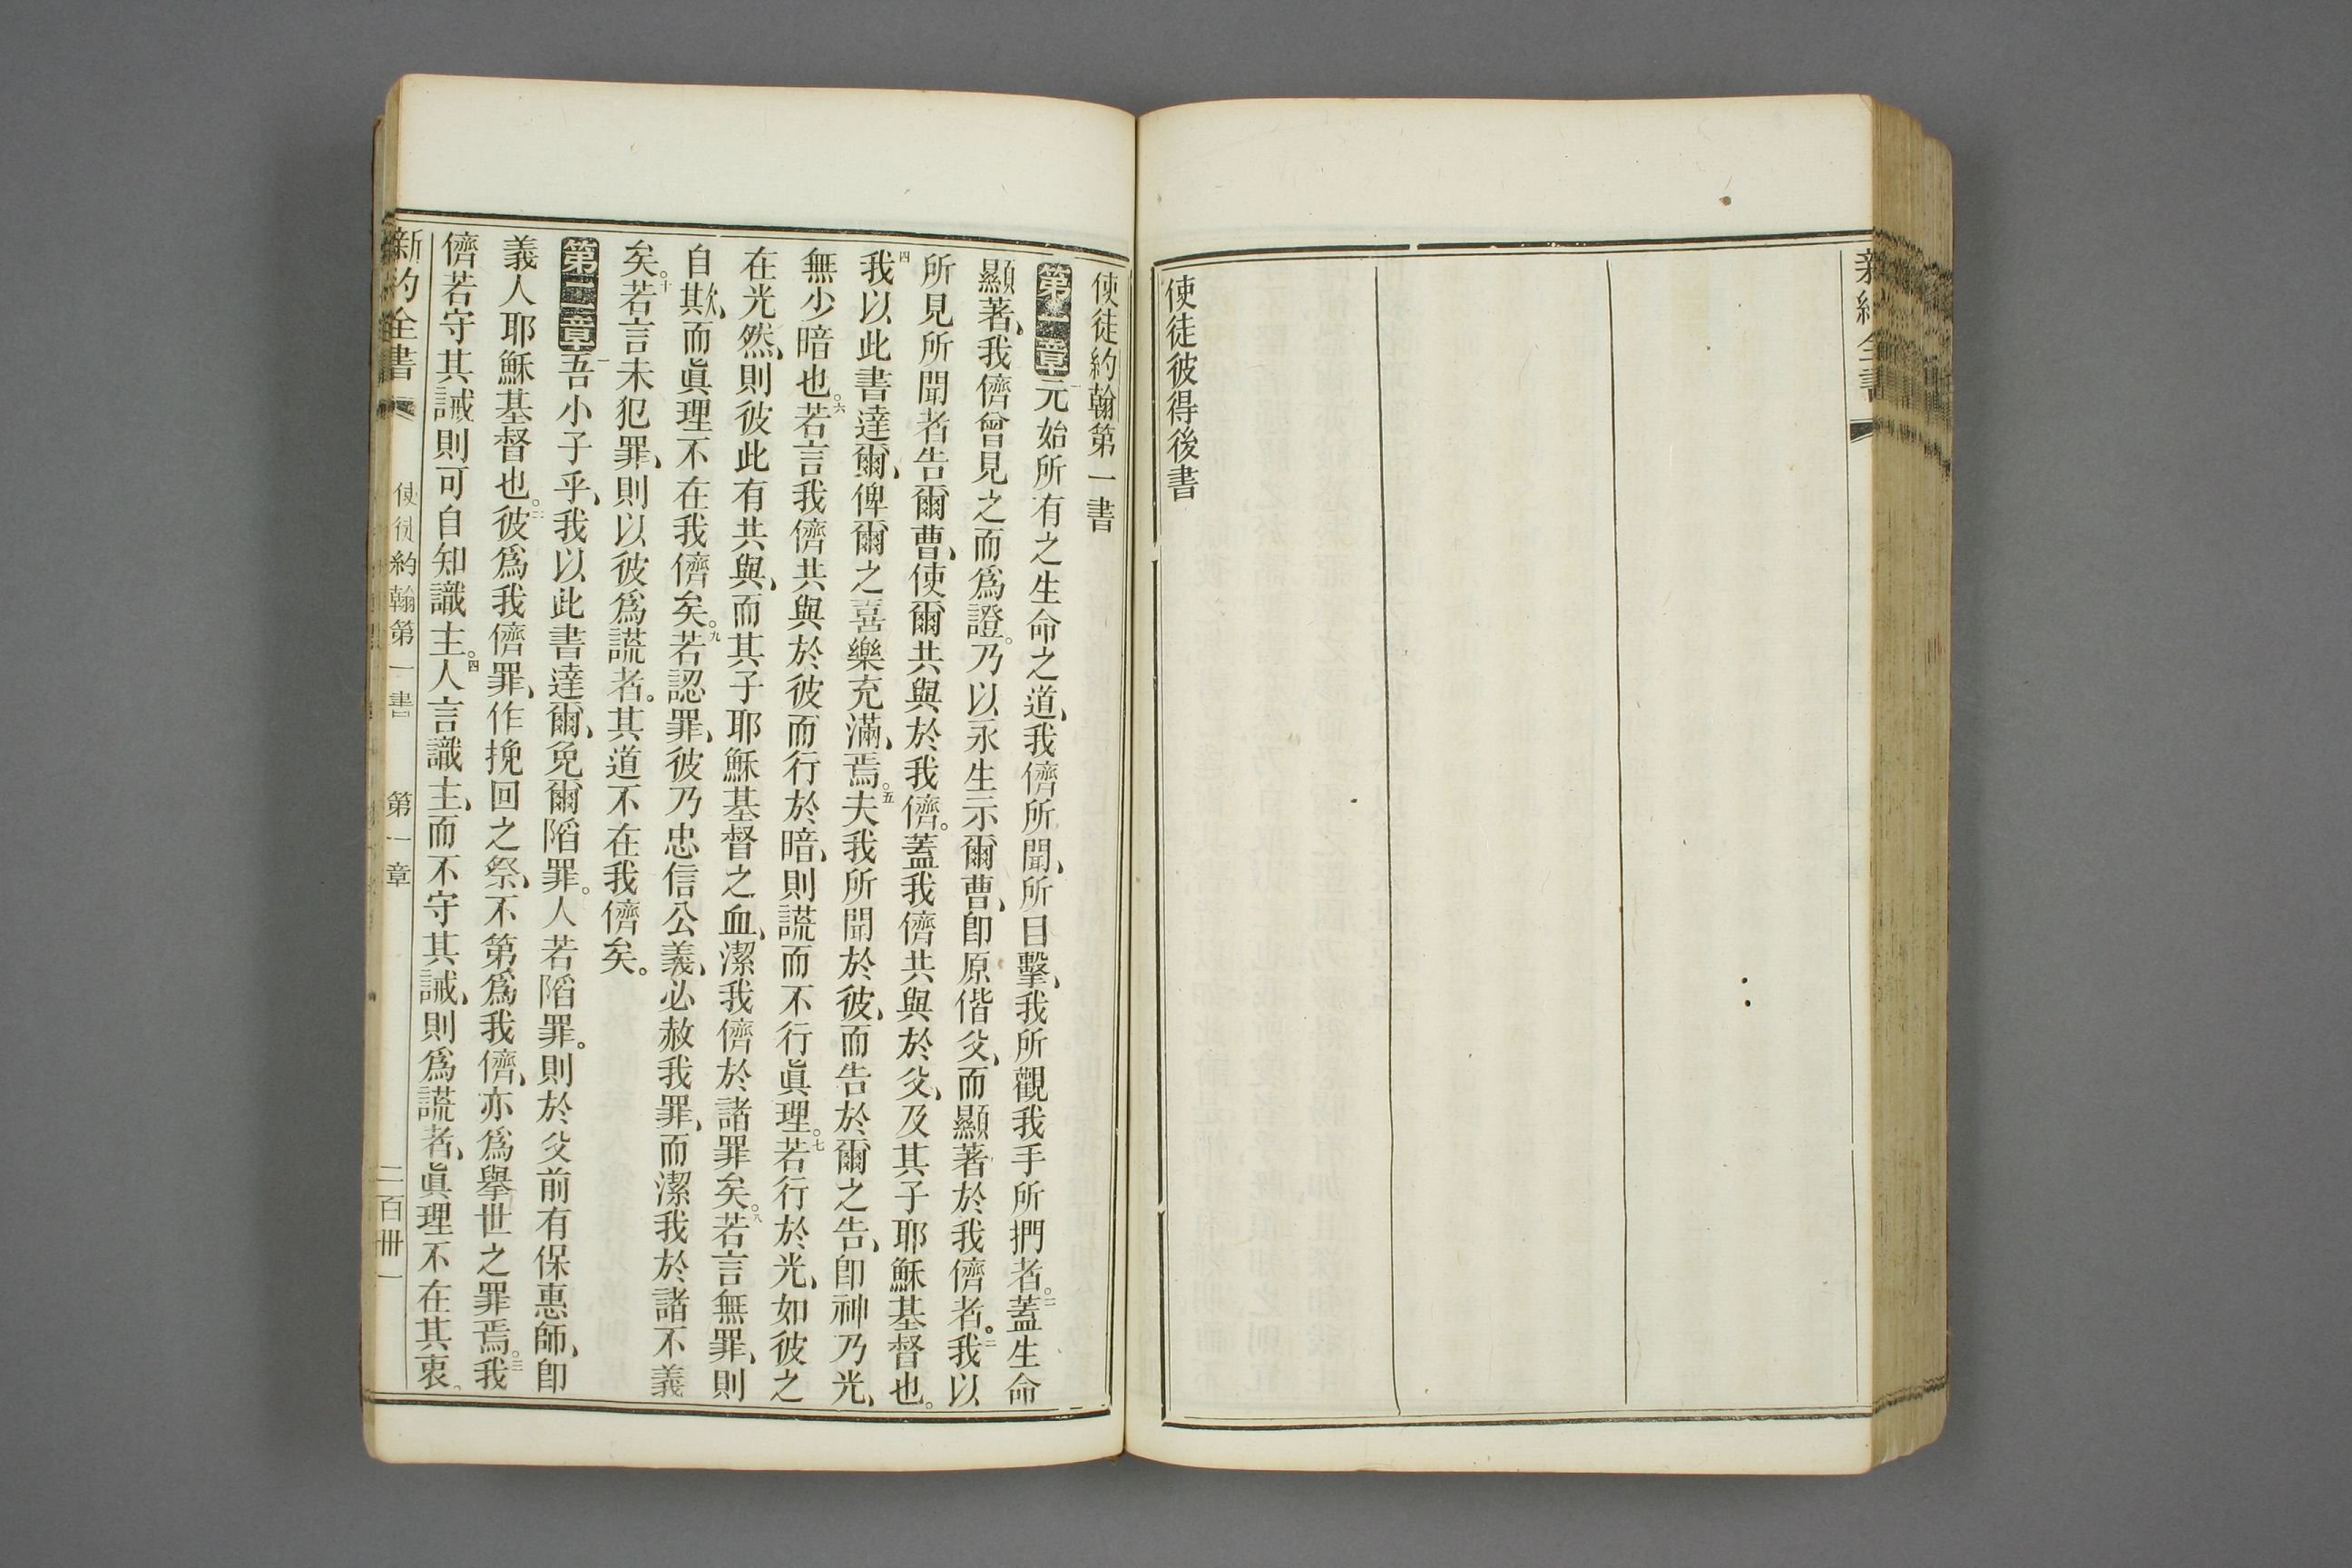 新約全書
使徒彼得後書
使徒約翰第一書
第一章 一元始所有之生命之道、我儕所聞、所目擊、我所觀我手所捫者。二蓋生命
顯著、我儕曾見之而爲證。乃以永生示爾曹、卽原偕父、而顯著於我儕者。三我以
所見所聞者告爾曹、使爾共與於我儕。蓋我儕共與於父、及其子耶穌基督也。
四我以此書達爾、俾爾之喜樂充滿焉。五夫我所聞於彼、而告於爾之告、卽神乃光、
無少暗也。六若言我儕共與於彼而行於暗、則謊而不行眞理。七若行於光、如彼之
在光然、則彼此有共與、而其子耶穌基督之血、潔我儕於諸罪矣。八若言無罪、則
自欺、而眞理不在我儕矣。九若認罪、彼乃忠信公義、必赦我罪、而潔我於諸不義
矣。十若言未犯罪、則以彼爲謊者。其道不在我儕矣。
第二章 一吾小子乎、我以此書達爾、免爾陷罪。人若陷罪。則於父前有保惠師、卽
義人耶穌基督也。二彼爲我儕罪、作挽回之祭、不第爲我儕、亦爲舉世之罪焉。三我
儕若守其誡則可自知識主。四人言識主、而不守其誡、則爲謊者、眞理不在其衷。
新約全書 使徒約翰第一書 第一章 二百卌一